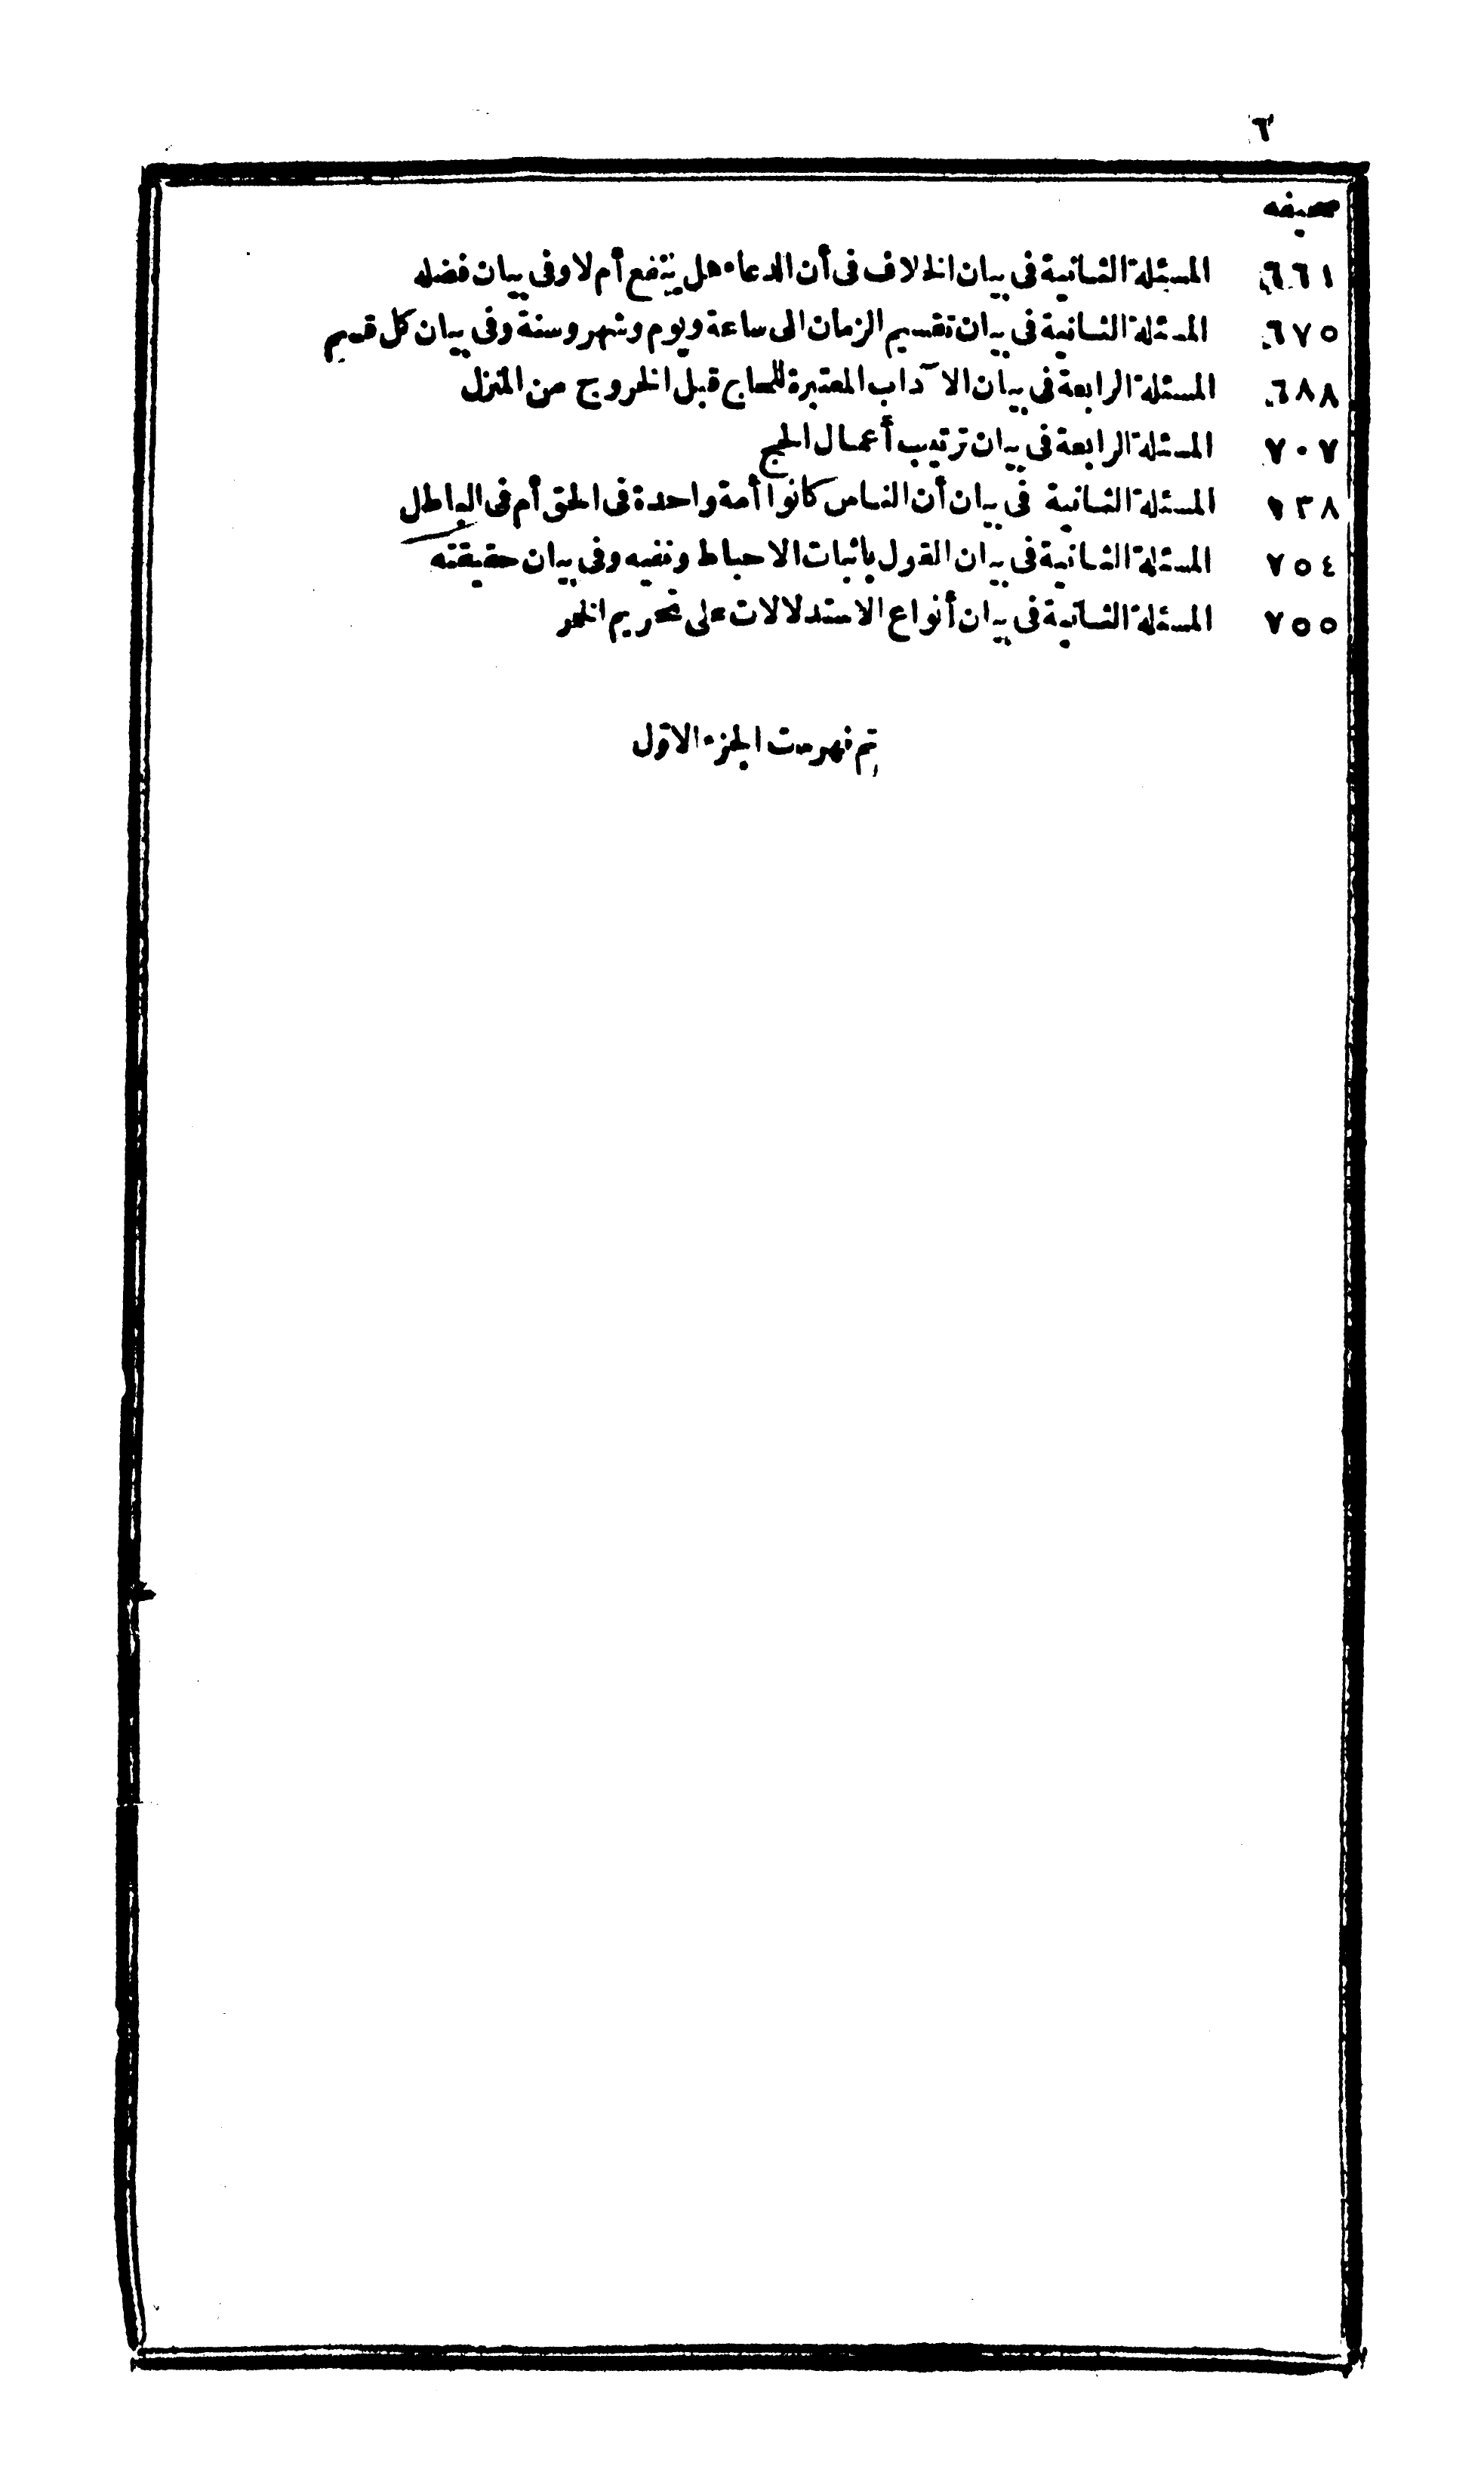 ٦
صحيفه
٦٦١ المسئلة الثانية في بيان الخلاف في أن الدعاء هل ينفع أم لا وفي بيان فضله
٦٧٥ المسئلة الثانية في بيان تقسيم الزمان الى ساعة ويوم وشهر وسنة وفي بيان كل قسم
٦٨٨ المسئلة الرابعة في بيان الآداب المعتبرة للحاج قبل الخروج من المنزل
٧٠٧ المسئلة الرابعة في بيان ترتيب أعمال الحج
٧٣٨ المسئلة الثانية في بيان أن الناس كانوا أمة واحدة في الحق أم في الباطل
٧٥٤ المسئلة الثانية في بيان القول باثبات الاحباط ونفيه وفي بيان حقيقته
٧٥٥ المسئلة الثانية في بيان أنواع الاستدلالات على تحريم الخمر
تم فهرست الجزء الاول